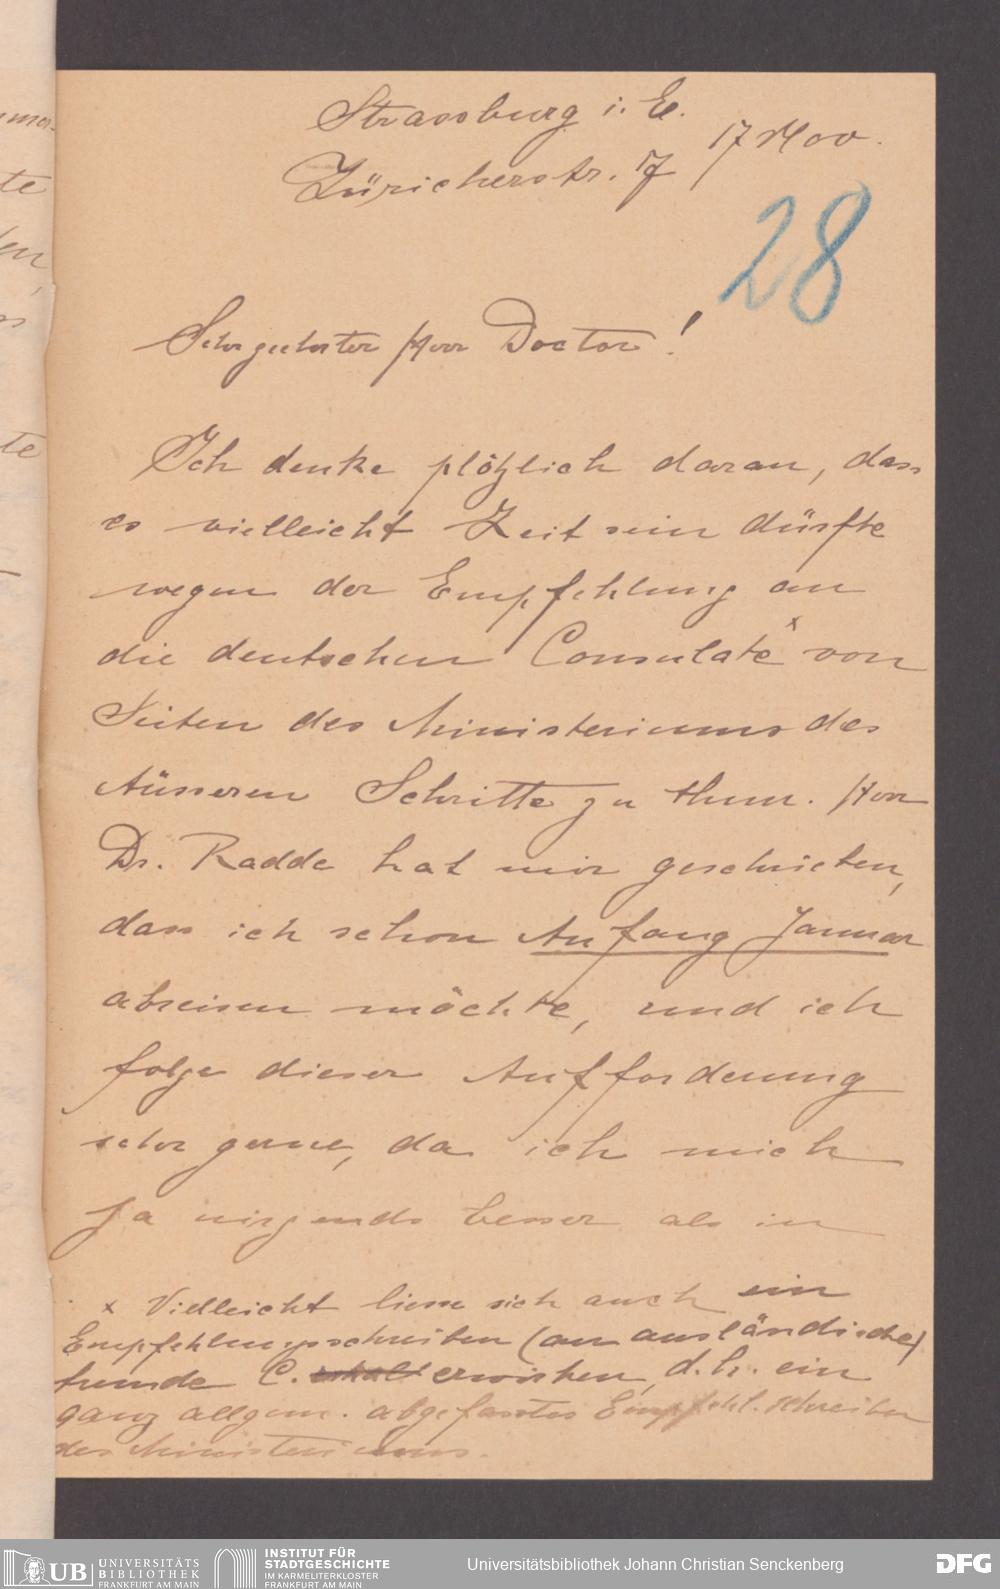 mor-
te
den,
te
Strassburg i. E.
Züricherstr. 17 / 17 Nov.
28
Sehr geehrter Herr Doctor!
Ich denke plötzlich daran, dass
es vielleicht Zeit sein dürfte
wegen der Empfehlung an
die deutschen Consulate x von
Seiten des Ministeriums des
Äusseren Schritte zu thun. Herr
Dr. Radde hat mir geschrieben,
dass ich schon Anfang Januar
abreisen möchte, und ich
folge dieser Aufforderung
sehr gerne, da ich mich
ja nirgends besser als in
x Vielleicht liesse sich auch ein
Empfehlungsschreiben (an ausländische)
fremde C. erwirken, d.h. ein
ganz allgem. abgefasstes Empfehl. schreiben
des Ministeriums.
UB UNIVERSITÄTS
BIBLIOTHEK
FRANKFURT AM MAIN
INSTITUT FÜR
STADTGESCHICHTE
IM KARMELITERKLOSTER
FRANKFURT AM MAIN
Universitätsbibliothek Johann Christian Senckenberg
DFG